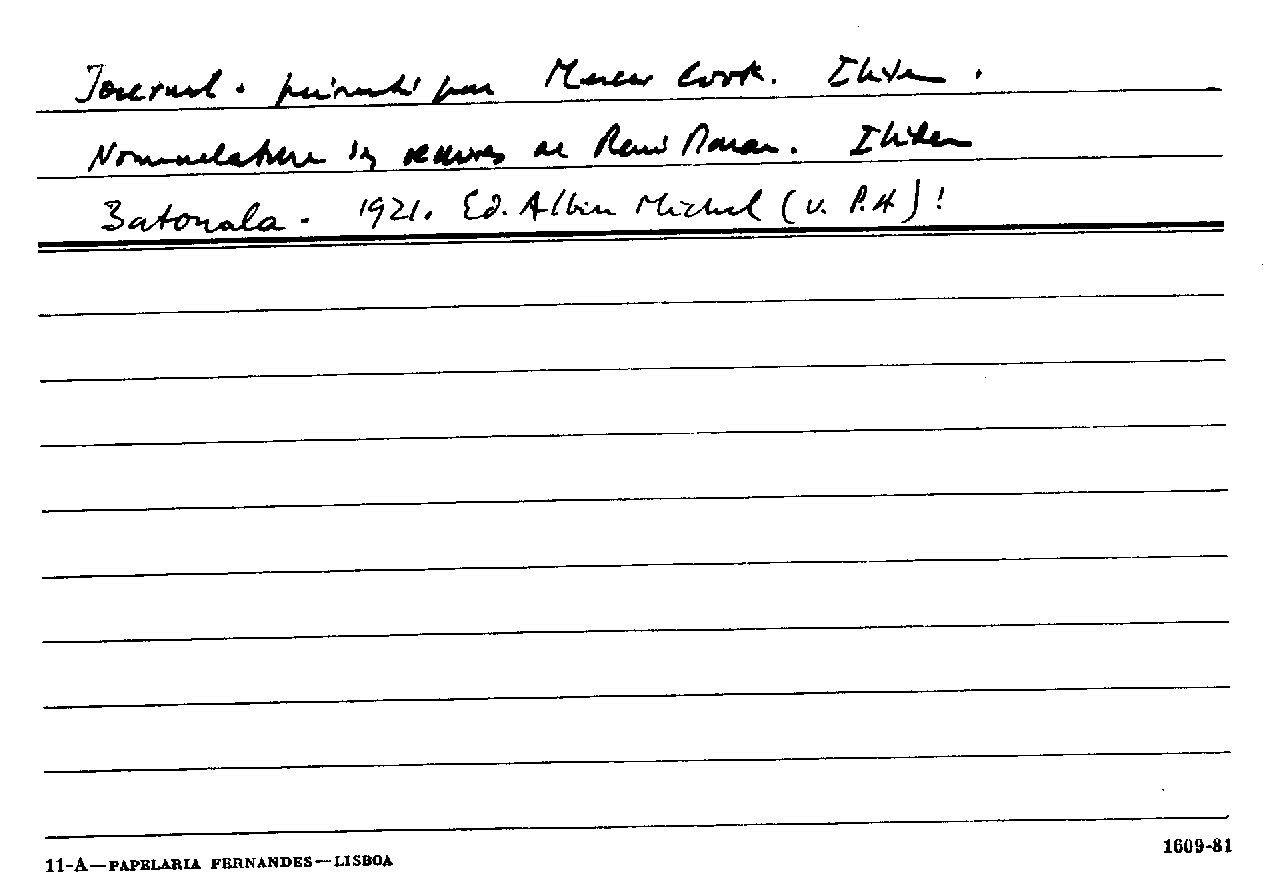 Journal. présenté par Mercer Cook. Ibidem.
Nomenclature des oeuvres de René Maran. Ibidem
Batouala - 1921. Ed. Albin Michel (v. P.H)!
11-A—PAPELARIA FERNANDES—LISBOA
1609-81